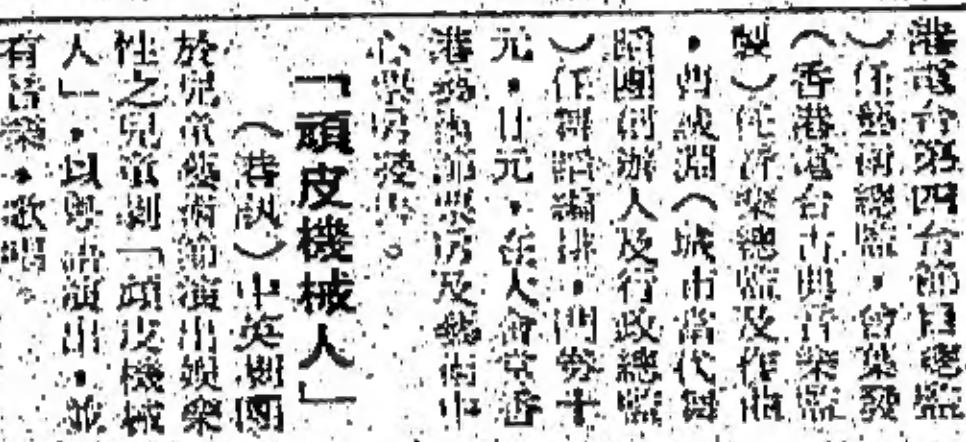 港電台第四台節目總監
）任藝術總監，曾葉發
（香港電台古典音樂監
製）任音樂總監及作曲
，曹誠淵（城市當代舞
蹈團創辦人及行政總監
）任舞蹈編排，門券十
元，廿元，在大會堂香
港藝術節票房及藝術中
心票房發售。
「頑皮機械人」
（港訊）中英劇團
於兒童藝術節演出娛樂
性之兒童劇「頑皮機械
人」，以粵語演出，並
有音樂，歌唱。